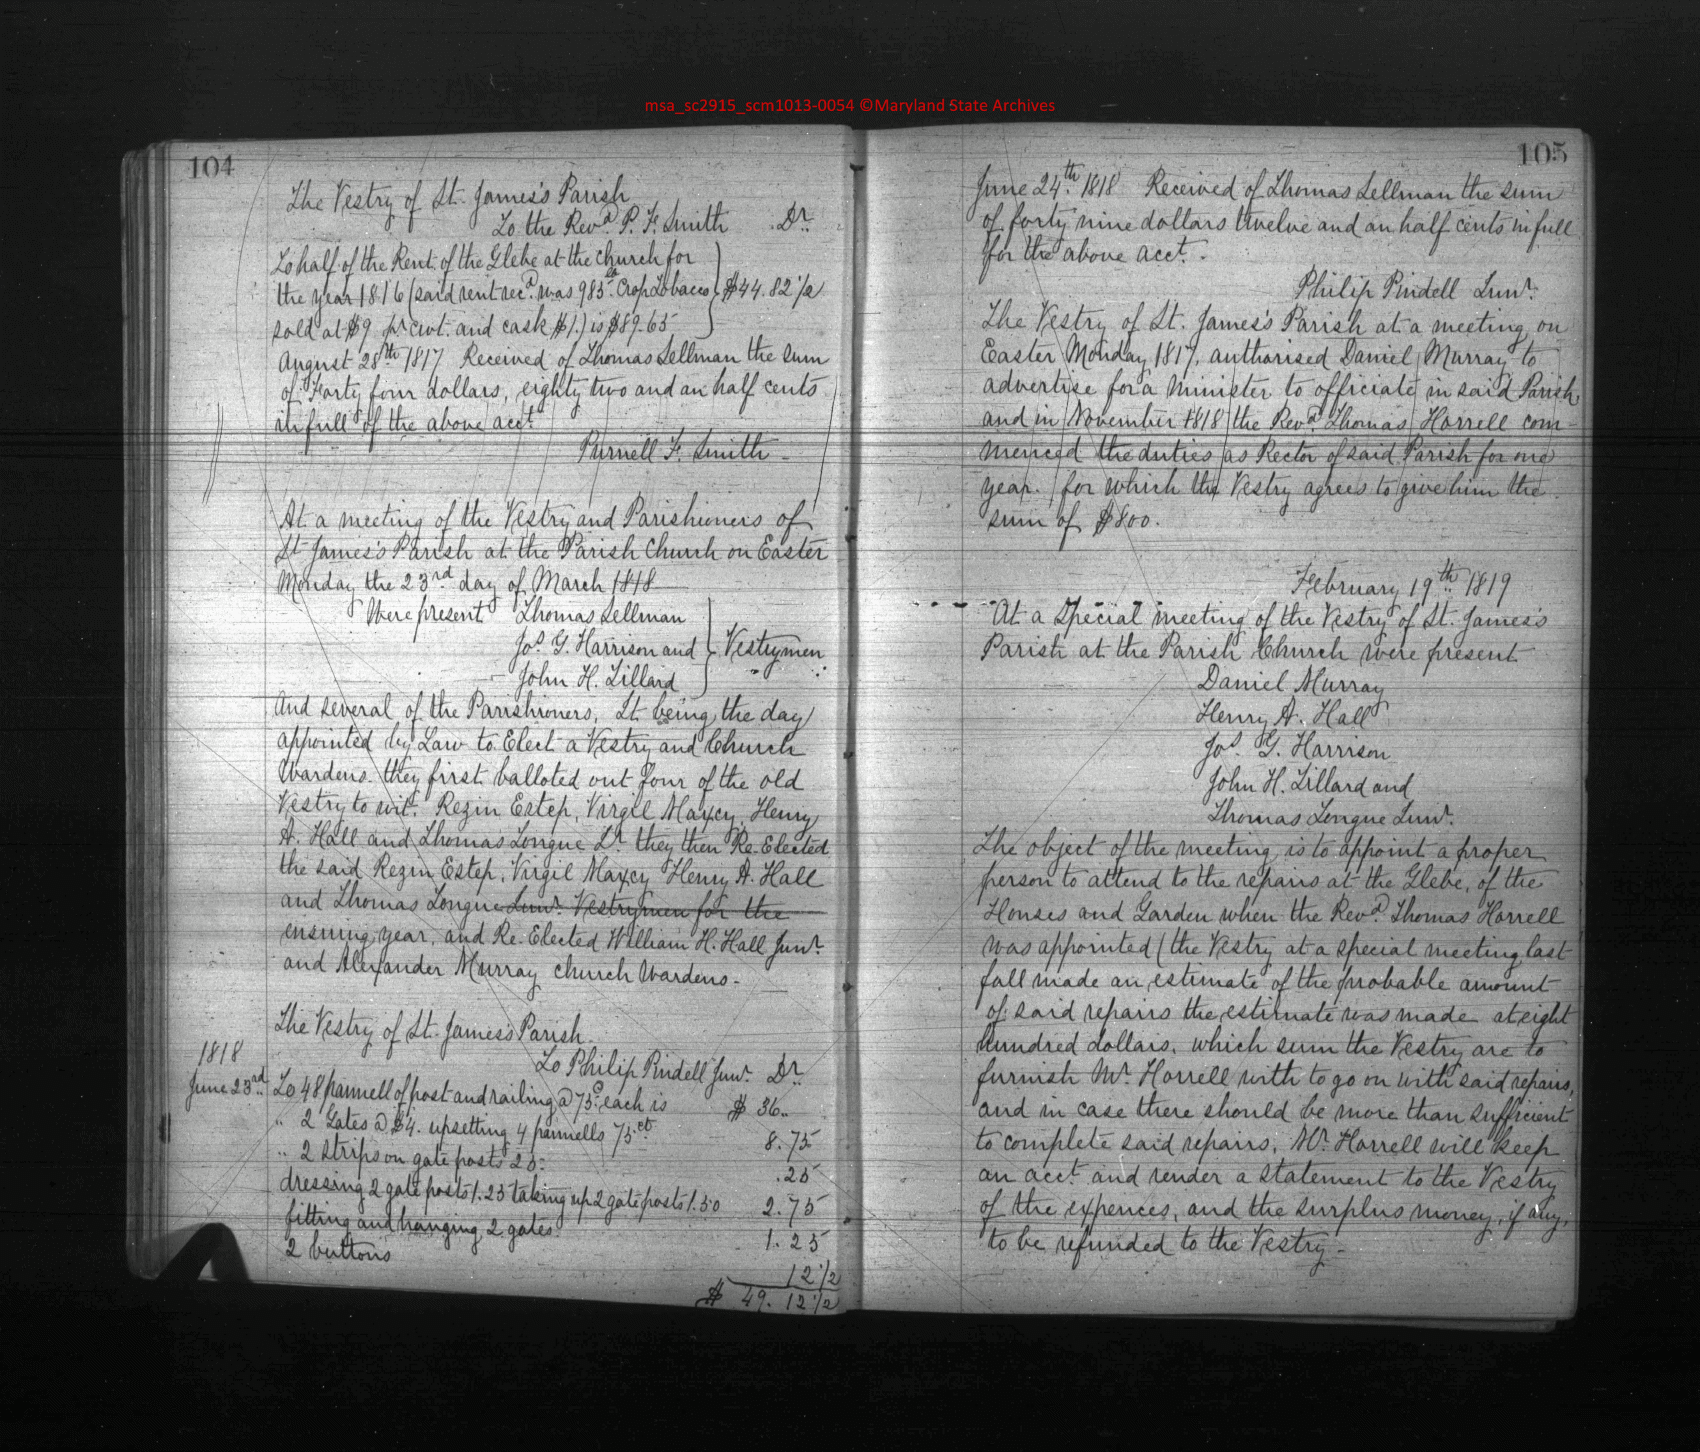 msa_sc2915_scm1013-0054 ©Maryland State Archives
104
The Vestry of St. James's Parish
To the Revd. P. F. Smith Dr.
To half of the Rent of the Glebe at the church for
the year 1816 (said rent recd. was 985 lb Crop Tobacco } $44.82 1/2
sold at $9 pr cwt. and cask $1.) is $89.65
August 28th 1817 Received of Thomas Sellman the sum
of Forty four dollars, eighty two and an half cents
in full of the above acct.
Purnell F. Smith -
At a meeting of the Vestry and Parishioners of
St James's Parish at the Parish Church on Easter
Monday the 23rd day of March 1818
Were present Thomas Sellman
Jos. G. Harrison and } Vestrymen
John H. Tillard
And several of the Parishioners, It being the day
appointed by Law to Elect a Vestry and Church
Wardens they first balloted out four of the old
Vestry to wit. Rezin Estep, Virgil Maxcy, Henry
A. Hall and Thomas Tongue Jr. they then Re-Elected
the said Rezin Estep, Virgil Maxcy Henry A. Hall
and Thomas Tongue Junr. Vestrymen for the
ensuing year, and Re-Elected William H. Hall Junr.
and Alexander Murray church Wardens -
The Vestry of St. James's Parish
1818
To Philip Pindell Junr. Dr.
June 23rd. To 48 pannell of post and railing @ 75c. each is $36..
" 2 Gates @ $4. upsetting 4 pannells 75 ct. 8.75
" 2 strips on gate posts 25. .25
dressing 2 gate posts 1.25 taking up 2 gate posts 1.50 2.75
fitting and hanging 2 gates 1.25
2 buttons 12 1/2
$ 49. 12 1/2
105
June 24th. 1818 Received of Thomas Sellman the sum
of forty nine dollars twelve and an half cents in full
for the above acct.
Philip Pindell Junr.
The Vestry of St. James's Parish at a meeting on
Easter Monday 1817, authorised Daniel Murray to
advertise for a Minister to officiate in said Parish
and in November 1818 the Revd. Thomas Horrell com-
menced the duties as Rector of said Parish for one
year. for which the Vestry agrees to give him the
sum of $800.
February 19th. 1819
At a Special meeting of the Vestry of St. James's
Parish at the Parish Church were present
Daniel Murray
Henry A. Hall
Jos. G. Harrison
John H. Tillard and
Thomas Tongue Junr.
The object of the meeting is to appoint a proper
person to attend to the repairs at the Glebe, of the
Houses and Garden when the Revd. Thomas Horrell
was appointed (the Vestry at a special meeting last
fall made an estimate of the probable amount
of said repairs the estimate was made at eight
hundred dollars, which sum the Vestry are to
furnish Mr. Horrell with to go on with said repairs,
and in case there should be more than sufficient
to complete said repairs, Mr. Horrell will keep
an acct. and render a statement to the Vestry
of the expences, and the surplus money, if any,
to be refunded to the Vestry -